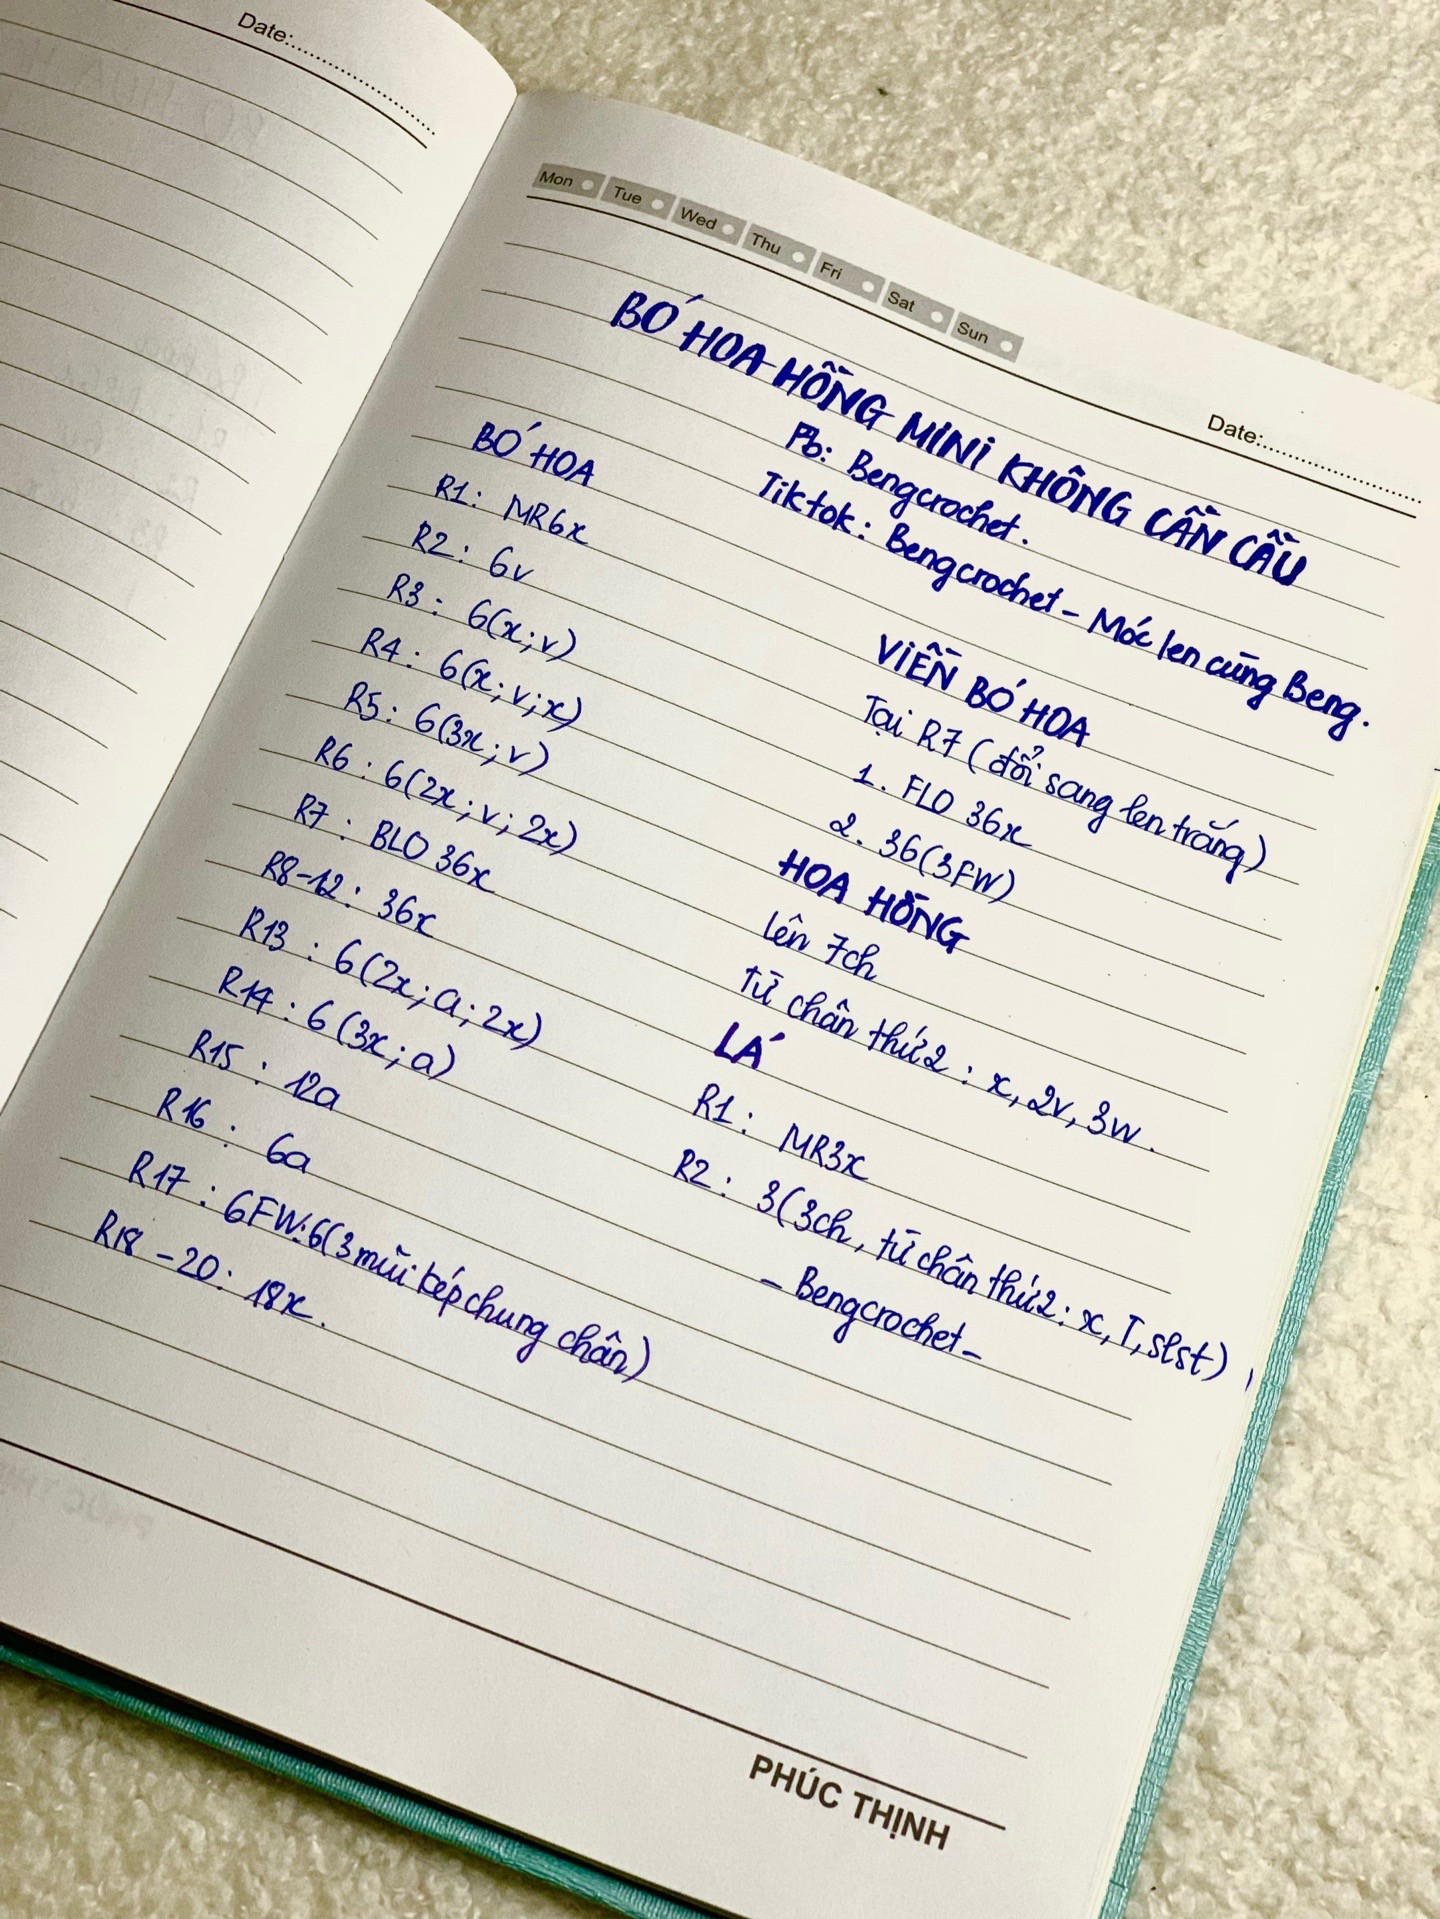 Date:
Mon Tue Wed Thu Fri Sat Sun
Date:
BÓ HOA HỒNG MINI KHÔNG CẦN CẦU
Fb: Bengcrochet.
Tiktok: Bengcrochet - Móc len cùng Beng.
BÓ HOA
R1: MR6x
R2: 6v
R3: 6(x;v)
R4: 6(x;v;x)
R5: 6(3x;v)
R6: 6(2x;v;2x)
R7: BLO 36x
R8-12: 36x
R13: 6(2x;a;2x)
R14: 6(3x;a)
R15: 12a
R16: 6a
R17: 6FW:6(3 mũi kép chung chân)
R18-20: 18x.
VIỀN BÓ HOA
Tại R7 (đổi sang len trắng)
1. FLO 36x
2. 36(3FW)
HOA HỒNG
lên 7ch
từ chân thứ 2: x, 2v, 3w.
LÁ
R1: MR3x
R2: 3(3ch, từ chân thứ 2: x, T, slst)
- Bengcrochet -
PHÚC THỊNH